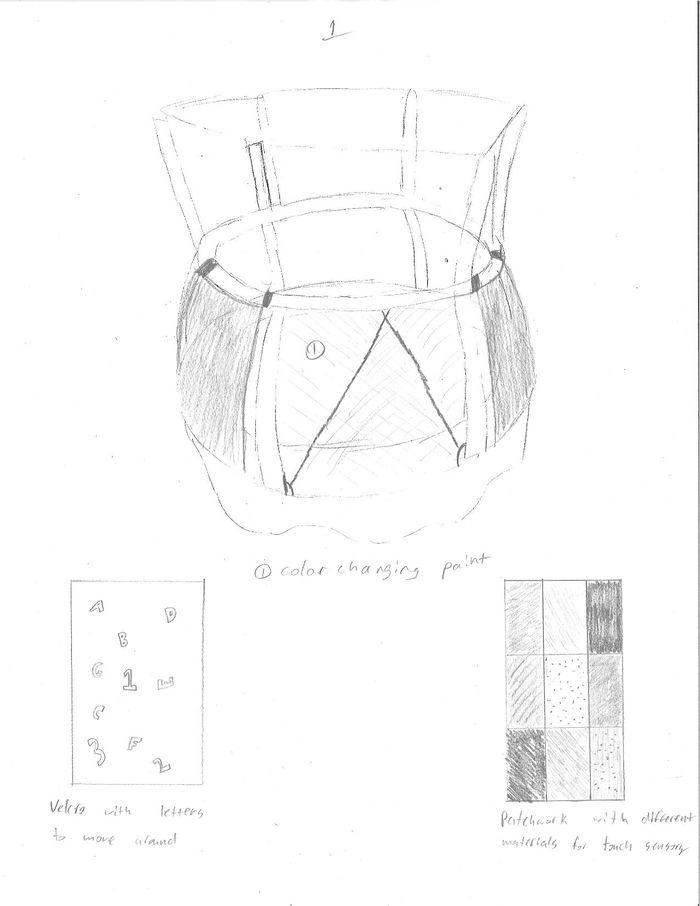 1
①
① color changing paint
A D
B
C 1 E
3 F 2
Velcro with letters
to move around
Patchwork with different
materials for touch sensory